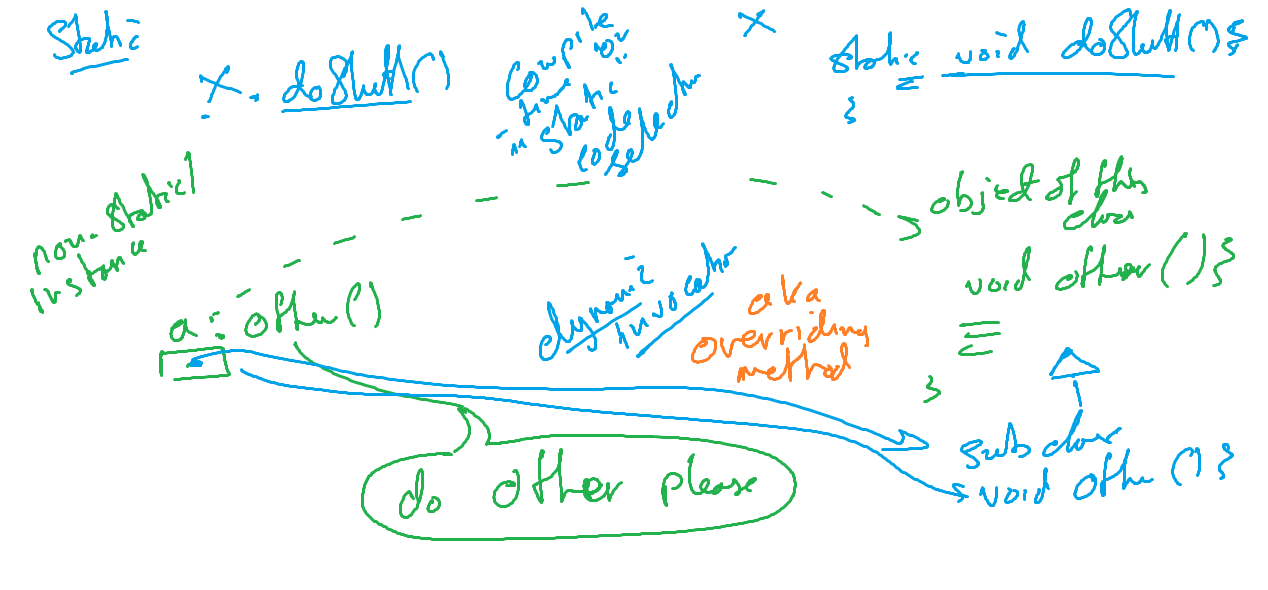 Static
X. doStuff()
Compile
time or
in static
code
selection
X
static void doStuff(){
}
non-static/
instance
object of this
class
void other(){
}
a. other()
dynamic
invocation
aka
overriding
method
subclass
void other(){
do other please